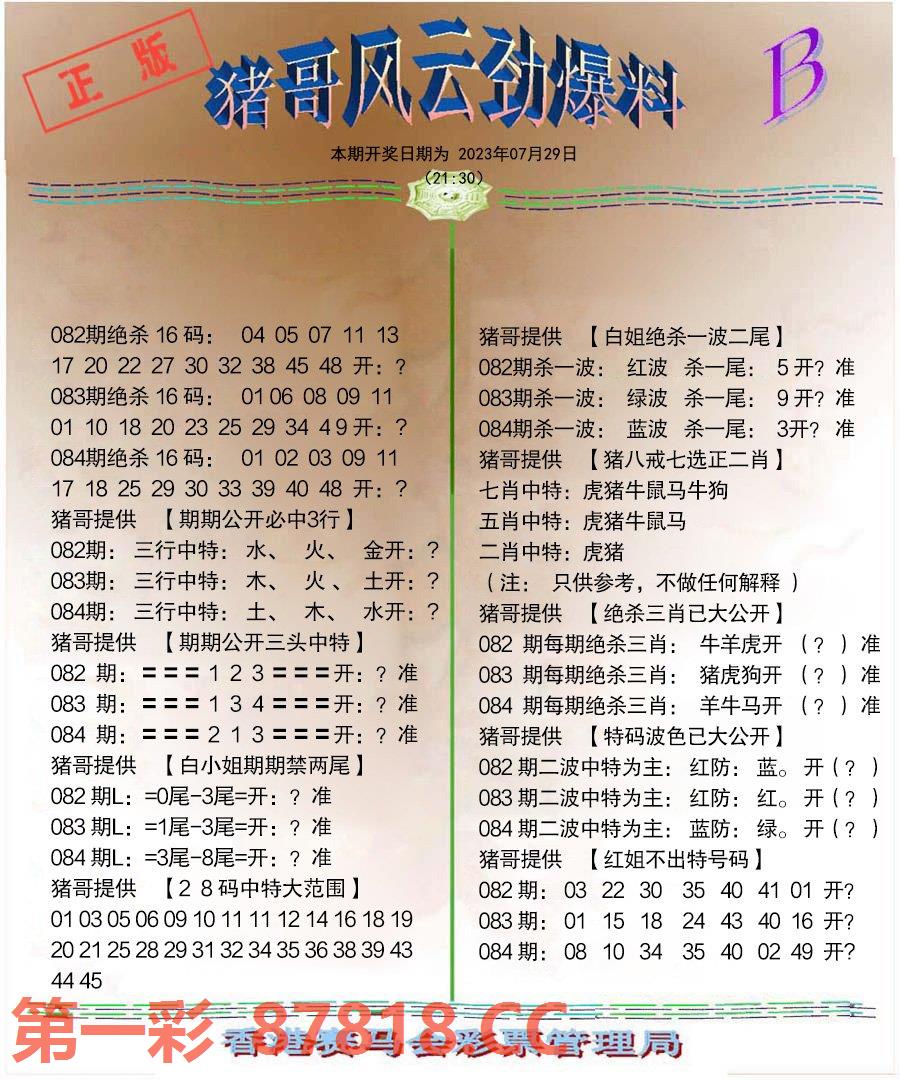 正版
猪哥风云劲爆料
B
本期开奖日期为 2023年07月29日
（21:30）
082期绝杀 16 码： 04 05 07 11 13
17 20 22 27 30 32 38 45 48 开：?
083期绝杀 16 码： 01 06 08 09 11
01 10 18 20 23 25 29 34 4 9 开：?
084期绝杀 16 码： 01 02 03 09 11
17 18 25 29 30 33 39 40 48 开：?
猪哥提供 【期期公开必中3行】
082期： 三行中特： 水、 火、 金开：?
083期： 三行中特： 木、 火 、 土开：?
084期： 三行中特： 土、 木、 水开：?
猪哥提供 【期期公开三头中特】
082 期：〓〓〓 1 2 3 〓〓〓开：? 准
083 期：〓〓〓 1 3 4 〓〓〓开：? 准
084 期：〓〓〓 2 1 3 〓〓〓开：? 准
猪哥提供 【白小姐期期禁两尾】
082 期L：=0尾-3尾=开：? 准
083 期L：=1尾-3尾=开：? 准
084 期L：=3尾-8尾=开：? 准
猪哥提供 【2 8 码中特大范围】
01 03 05 06 09 10 11 11 12 14 16 18 19
20 21 25 28 29 31 32 34 35 36 38 39 43
44 45
猪哥提供 【白姐绝杀一波二尾】
082期杀一波： 红波 杀一尾： 5 开? 准
083期杀一波： 绿波 杀一尾： 9 开? 准
084期杀一波： 蓝波 杀一尾： 3开? 准
猪哥提供 【猪八戒七选正二肖】
七肖中特：虎猪牛鼠马牛狗
五肖中特：虎猪牛鼠马
二肖中特：虎猪
（注： 只供参考，不做任何解释 ）
猪哥提供 【绝杀三肖已大公开】
082 期每期绝杀三肖： 牛羊虎开 （? ）准
083 期每期绝杀三肖： 猪虎狗开 （? ）准
084 期每期绝杀三肖： 羊牛马开 （? ）准
猪哥提供 【特码波色已大公开】
082 期二波中特为主：红防：蓝。开（? ）
083 期二波中特为主：红防：红。开（? ）
084 期二波中特为主：蓝防：绿。开（? ）
猪哥提供 【红姐不出特号码】
082 期： 03 22 30 35 40 41 01 开?
083 期： 01 15 18 24 43 40 16 开?
084 期： 08 10 34 35 40 02 49 开?
第一彩 87818.CC
香港赛马会彩票管理局